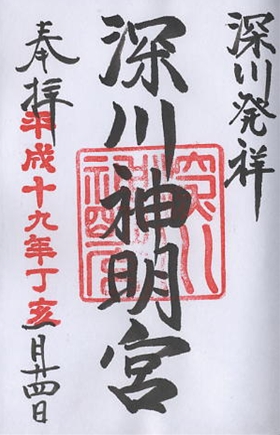 深川発祥
深川神明宮
奉拝
平成十九年丁亥一月廿四日